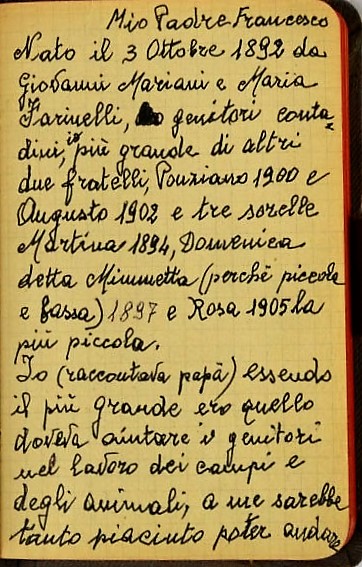 Mio Padre Francesco
Nato il 3 Ottobre 1892 da
Giovanni Mariani e Maria
Farinelli, genitori conta=
dini, io più grande di altri
due fratelli, Ponziano 1900 e
Augusto 1902 e tre sorelle
Martina 1894, Domenica
detta Mimmetta (perchè piccola
e bassa) 1897 e Rosa 1905 la
più piccola.
Io (raccontava papà) essendo
il più grande ero quello
doveva aiutare i genitori
nel lavoro dei campi e
degli animali, a me sarebbe
tanto piaciuto poter andare